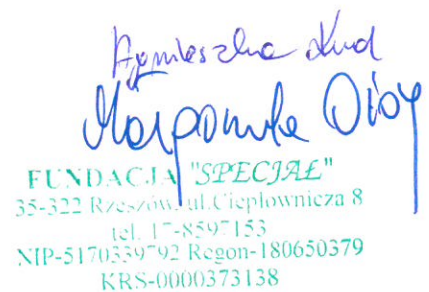 Agnieszka Kud
Małgorzata
FUNDACJA "SPECJAŁ"
35-322 Rzeszów, ul.Ciepłownicza 8
tel. 17-8597153
NIP-5170339792 Regon-180650379
KRS-0000373138